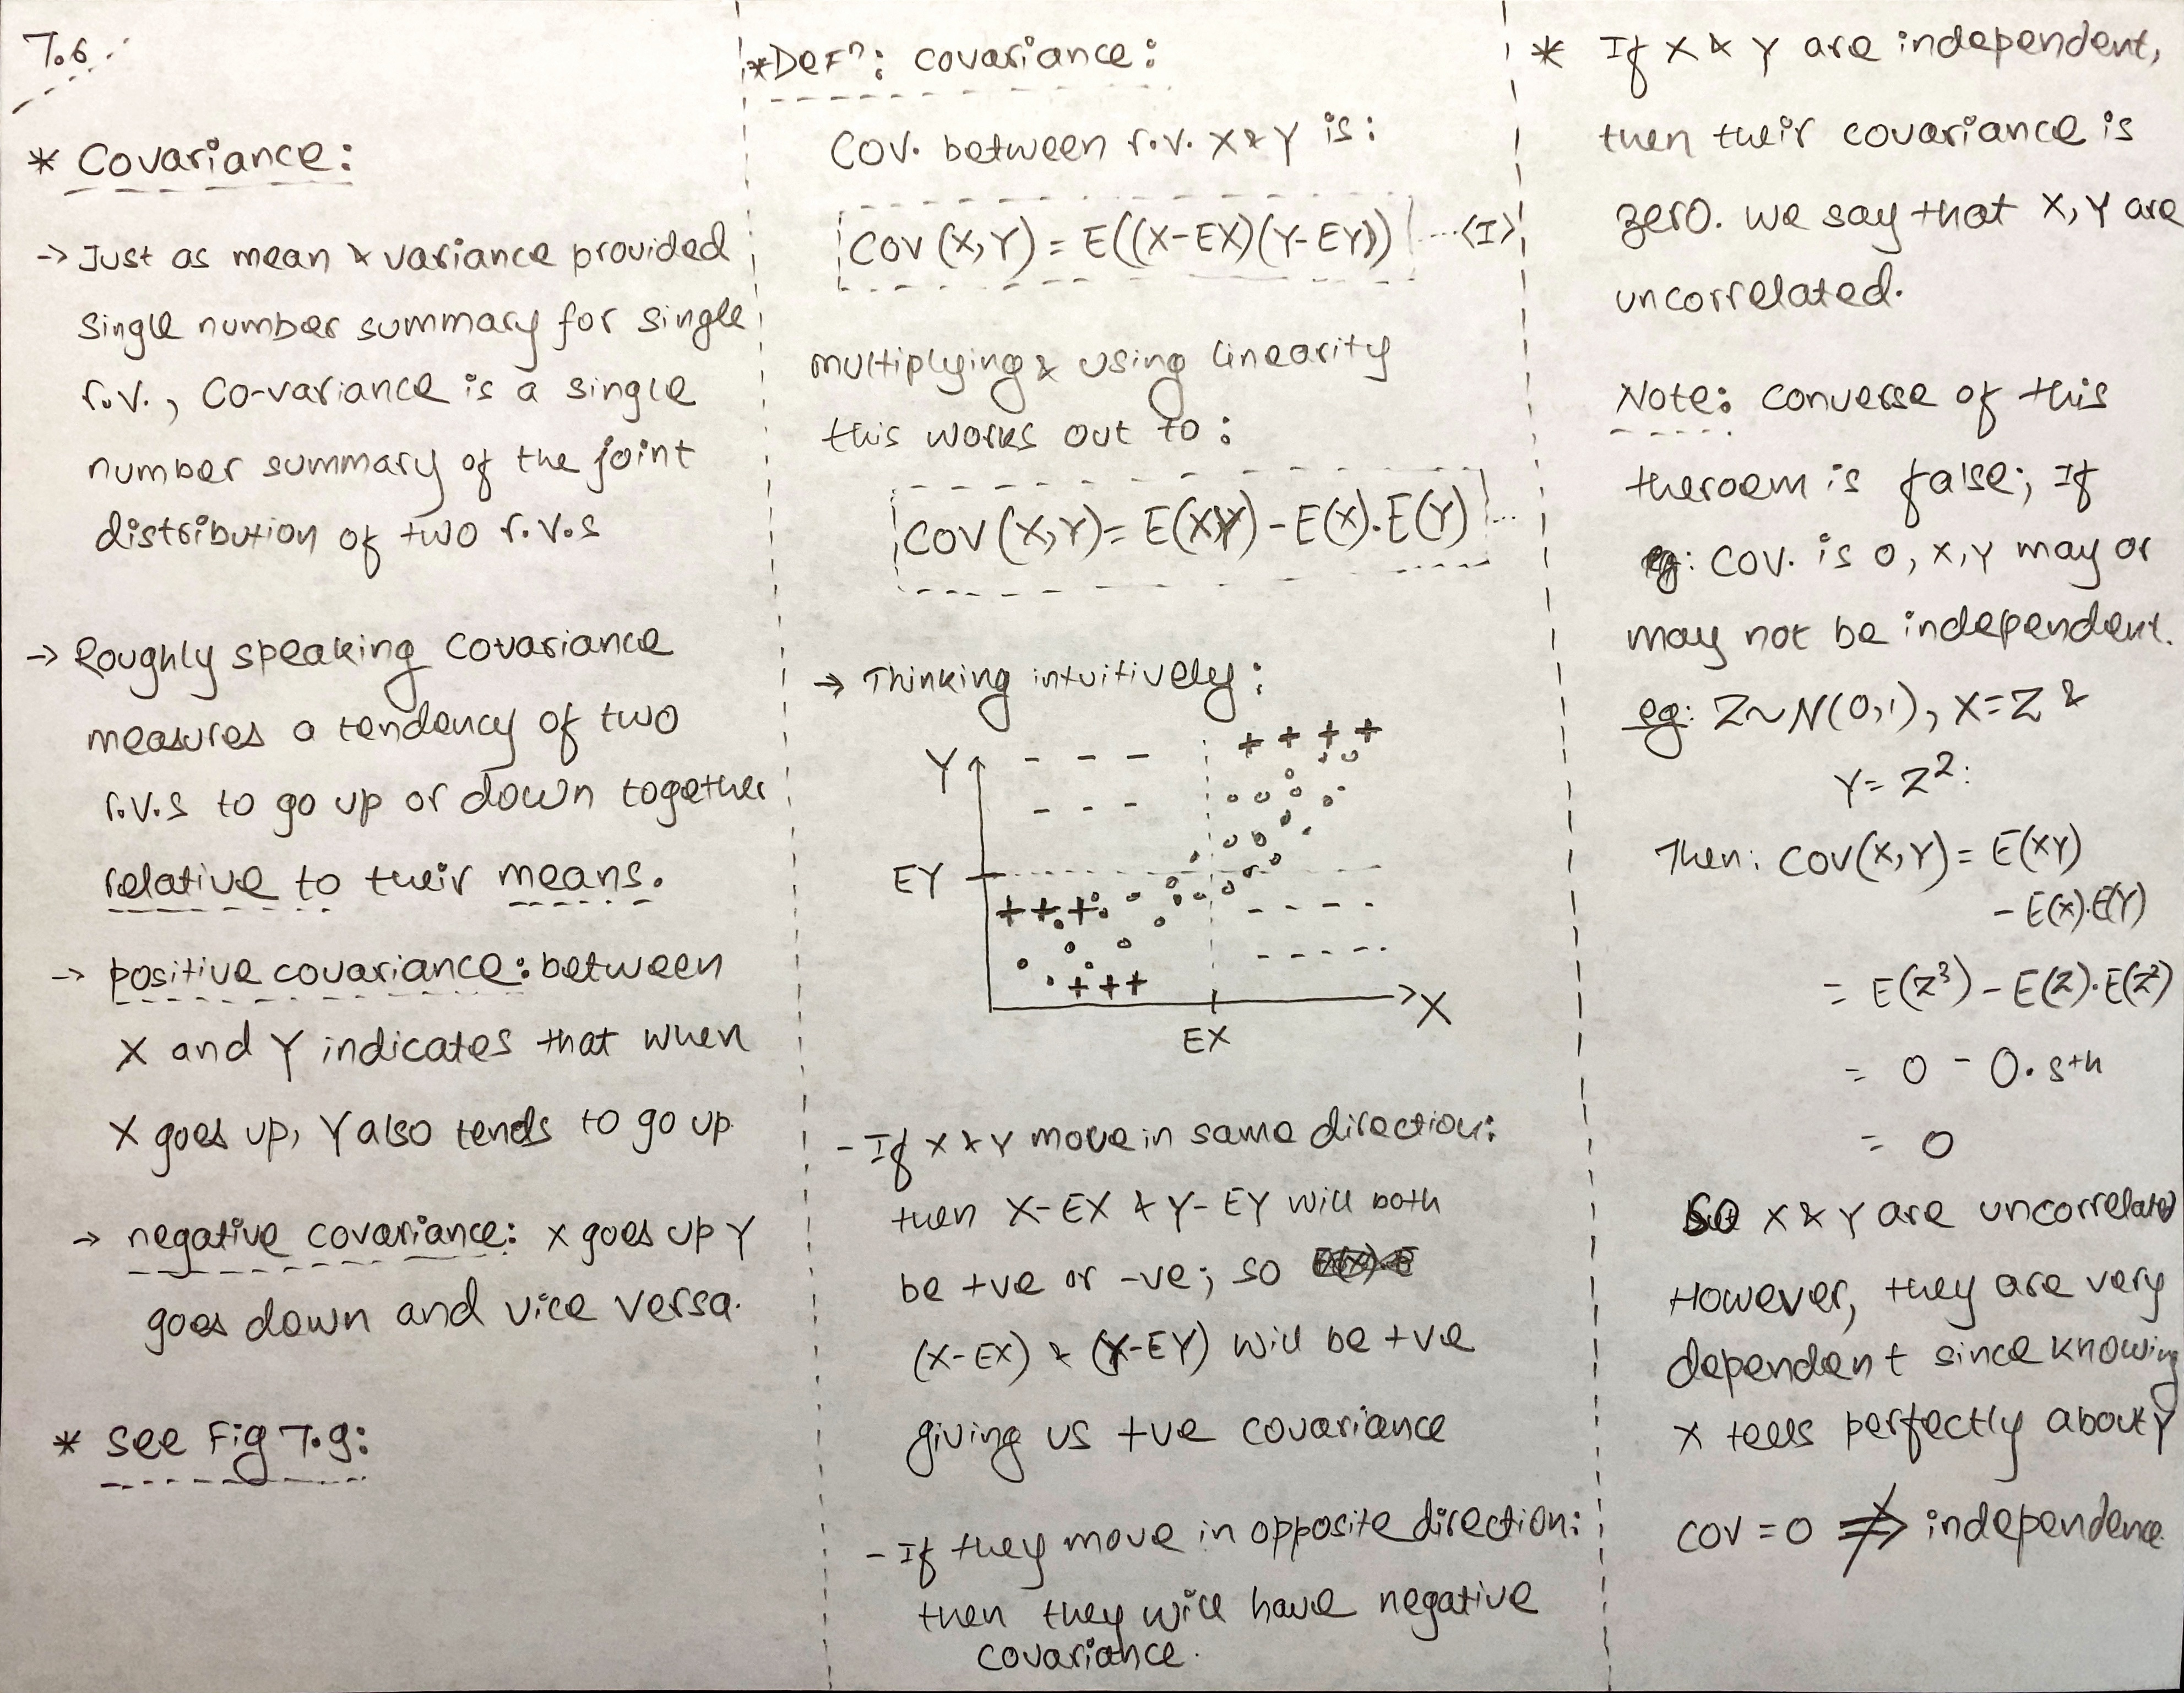 7.6
* Covariance:
→ Just as mean & variance provided
single number summary for single
r.v., Co-variance is a single
number summary of the joint
distribution of two r.v.s
→ Roughly speaking covariance
measures a tendency of two
r.v.s to go up or down together
relative to their means.
→ positive covariance: between
X and Y indicates that when
X goes up, Y also tends to go up
→ negative covariance: X goes up Y
goes down and vice versa.
* see Fig 7.9:
* DeFⁿ: covariance:
Cov. between r.v. X & Y is:
COV (X,Y) = E((X-EX)(Y-EY)) ...<I>
multiplying & using linearity
this works out to:
COV (X,Y) = E(XY) - E(X).E(Y) ...
→ Thinking intuitively:
Y
- - - + + + +
- - -
EY
+ + + - - - -
- - - -
+ + +
X
EX
- If X & Y move in same direction:
then X-EX & Y-EY will both
be +ve or -ve; so
(X-EX) & (Y-EY) will be +ve
giving us +ve covariance
- If they move in opposite direction:
then they will have negative
covariance.
* If X & Y are independent,
then their covariance is
zero. we say that X, Y are
uncorrelated.
Note: converse of this
theroem is false; If
eg: COV. is 0, X,Y may or
may not be independent.
eg: Z~N(0,1), X=Z &
Y=Z²:
Then: COV(X,Y) = E(XY)
- E(X).E(Y)
= E(Z³) - E(Z).E(Z²)
= 0 - 0. sth
= 0
So X & Y are uncorrelated
However, they are very
dependent since knowing
X tells perfectly about Y
COV = 0 ⇏ independence.